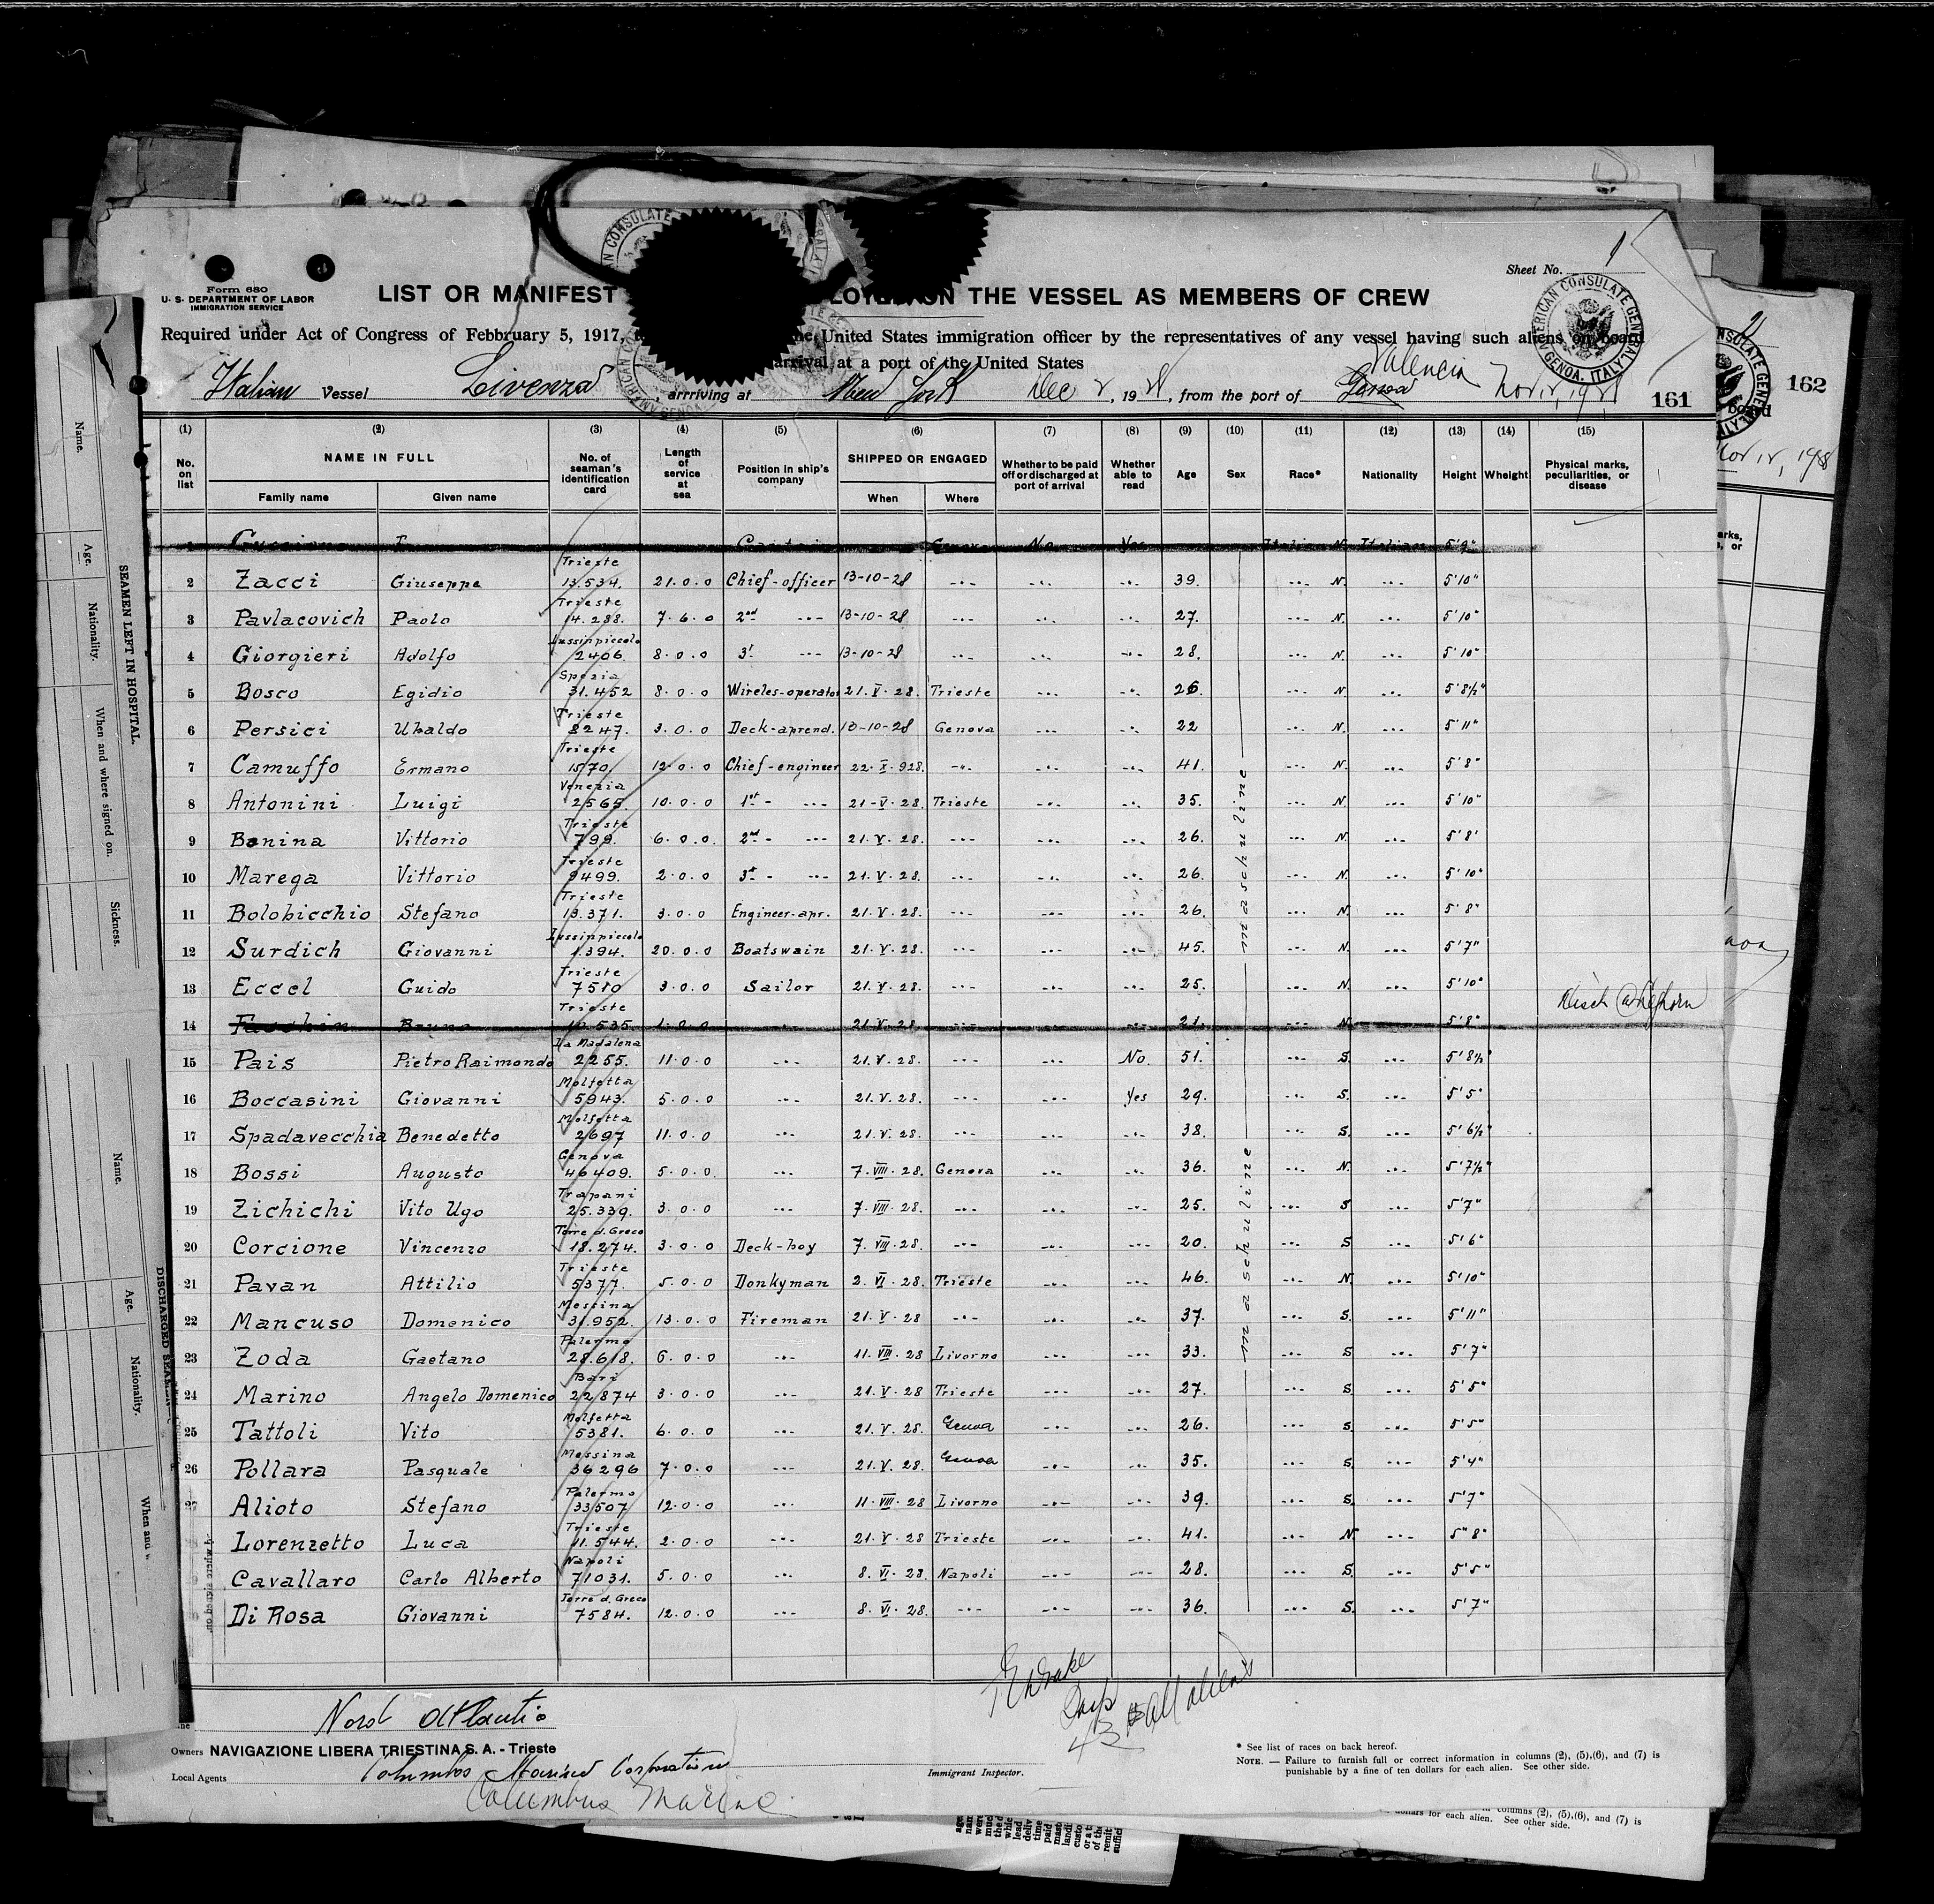 Sheet No. 1
Form 680
U. S. DEPARTMENT OF LABOR
IMMIGRATION SERVICE
LIST OR MANIFEST ON THE VESSEL AS MEMBERS OF CREW
Required under Act of Congress of Febbruary 5, 1917, United States immigration officer by the representatives of any vessel having such aliens on board
arrival at a port of the United States
AMERICAN CONSULATE GENERAL GENOA, ITALY
Italian Vessel Livenza, arrriving at New York Dec 2, 1928, from the port of Genova Valencia Nov 12, 1928 161
162
(1) (2) (3) (4) (5) (6) (7) (8) (9) (10) (11) (12) (13) (14) (15)
No. on list NAME IN FULL Family name Given name No. of seaman's identification card Length of service at sea Position in ship's company SHIPPED OR ENGAGED When Where Whether to be paid off or discharged at port of arrival Whether able to read Age Sex Race* Nationality Height Wheight Physical marks, peculiarities, or disease
1 Genova No Yes Italian N. Italian 5'9"
2 Zacci Giuseppe Trieste 13534. 21.0.0 Chief-officer 13-10-28 -.- -.- -.- 39. -.- N. -.- 5'10"
3 Pavlacovich Paolo Trieste 14.288. 7.6.0 2nd -.- 13-10-28 -.- -.- -.- 27. -.- N. -.- 5'10"
4 Giorgieri Adolfo Lussinpiccolo 2406. 8.0.0 3d -.- 13-10-28 -.- -.- -.- 28. -.- N. -.- 5'10"
5 Bosco Egidio Spezia 31.452 8.0.0 Wireles-operator 21.V.28. Trieste -.- -.- 26. -.- N. -.- 5'8½"
6 Persici Ubaldo Trieste 8247. 3.0.0 Deck-aprend. 13-10-28 Genova -.- -.- 22 -.- N. -.- 5'11"
7 Camuffo Ermano Trieste 1570 12.0.0 Chief-engineer 22.X.928. -.- -.- -.- 41. -.- N. -.- 5'8"
8 Antonini Luigi Venezia 2565. 10.0.0 1st - -.- 21-V-28. Trieste -.- -.- 35. -.- N. -.- 5'10"
9 Banina Vittorio Trieste 799. 6.0.0. 2nd - -.- 21.V.28. -.- -.- -.- 26. -.- N. -.- 5'8'
10 Marega Vittorio Trieste 9499. 2.0.0 3rd - -.- 21.V.28. -.- -.- -.- 26. -.- N. -.- 5'10"
11 Bolobicchio Stefano Trieste 13.371. 3.0.0 Engineer-apr. 21.V.28. -.- -.- -.- 26. -.- N. -.- 5'8"
12 Surdich Giovanni Lussinpiccolo 1394. 20.0.0 Boatswain 21.V.28. -.- -.- -.- 45. -.- N. -.- 5'7"
13 Eccel Guido Trieste 7510 3.0.0 Sailor 21.V.28. -.- -.- -.- 25. -.- N. -.- 5'10"
14 Bruno Trieste 535 1.0.0 -.- 21-V-28 -.- -.- 21. -.- N. -.- 5'8" Disch @ Leghorn
15 Pais Pietro Raimondo La Madalena 2255. 11.0.0 -.- 21.V.28. -.- -.- No. 51. -.- S. -.- 5'8½"
16 Boccasini Giovanni Molfetta 5943. 5.0.0 -.- 21.V.28. -.- -.- Yes 29. -.- S. -.- 5'5"
17 Spadavecchia Benedetto Molfetta 2697 11.0.0 -.- 21.V.28. -.- -.- -.- 38. -.- S. -.- 5'6½"
18 Bossi Augusto Genova 46409. 5.0.0. -.- 7.VIII.28. Genova -.- -.- 36. -.- N. -.- 5'7½"
19 Zichichi Vito Ugo Trapani 25.339. 3.0.0 -.- 7.VIII.28. -.- -.- -.- 25. -.- S -.- 5'7"
20 Corcione Vincenzo Torre d. Greco 18.274. 3.0.0 Deck-boy 7.VIII.28. -.- -.- -.- 20. -.- S -.- 5'6"
21 Pavan Attilio Trieste 5377. 5.0.0 Donkyman 2.VI.28. Trieste -.- -.- 46. -.- N. -.- 5'10"
22 Mancuso Domenico Messina 31.952. 13.0.0 Fireman 21.V.28 -.- -.- -.- 37. -.- S. -.- 5'11"
23 Zoda Gaetano Palermo 28.618. 6.0.0 -.- 11.VIII.28 Livorno -.- -.- 33. -.- S -.- 5'7"
24 Marino Angelo Domenico Bari 22874 3.0.0 -.- 21.V.28 Trieste -.- -.- 27. -.- S. -.- 5'5"
25 Tattoli Vito Molfetta 5381. 6.0.0 -.- 21.V.28. Genoa -.- -.- 26. -.- S. -.- 5'5"
26 Pollara Pasquale Messina 36296 7.0.0 -.- 21.V.28. Genoa -.- -.- 35. -.- S. -.- 5'4"
27 Alioto Stefano Palermo 33507 12.0.0 -.- 11.VIII.28 Livorno -.- -.- 39. -.- S. -.- 5'7"
Lorenzetto Luca Trieste 11.544. 2.0.0 -.- 21.V.28 Trieste -.- -.- 41. -.- N. -.- 5"8"
Cavallaro Carlo Alberto Napoli 71031. 5.0.0 -.- 8.VI.28. Napoli -.- -.- 28. -.- S. -.- 5'5"
Di Rosa Giovanni Torre d. Greco 7584. 12.0.0 -.- 8.VI.28. -.- -.- -.- 36. -.- S. -.- 5'7"
maschuline
maschuline
Nord Atlantic
Owners NAVIGAZIONE LIBERA TRIESTINA S. A. - Trieste
Local Agents Columbus Marine Corporation
Columbus Marine
43 all aliens
Immigrant Inspector.
* See list of races on back hereof.
NOTE. — Failure to furnish full or correct information in columns (2), (5),(6), and (7) is
punishable by a fine of ten dollars for each alien. See other side.
columns (2), (5),(6), and (7) is
dollars for each alien. See other side.
SEAMEN LEFT IN HOSPITAL.
Name. Age. Nationality. When and where signed on. Sickness.
DISCHARGED
Name. Age. Nationality.